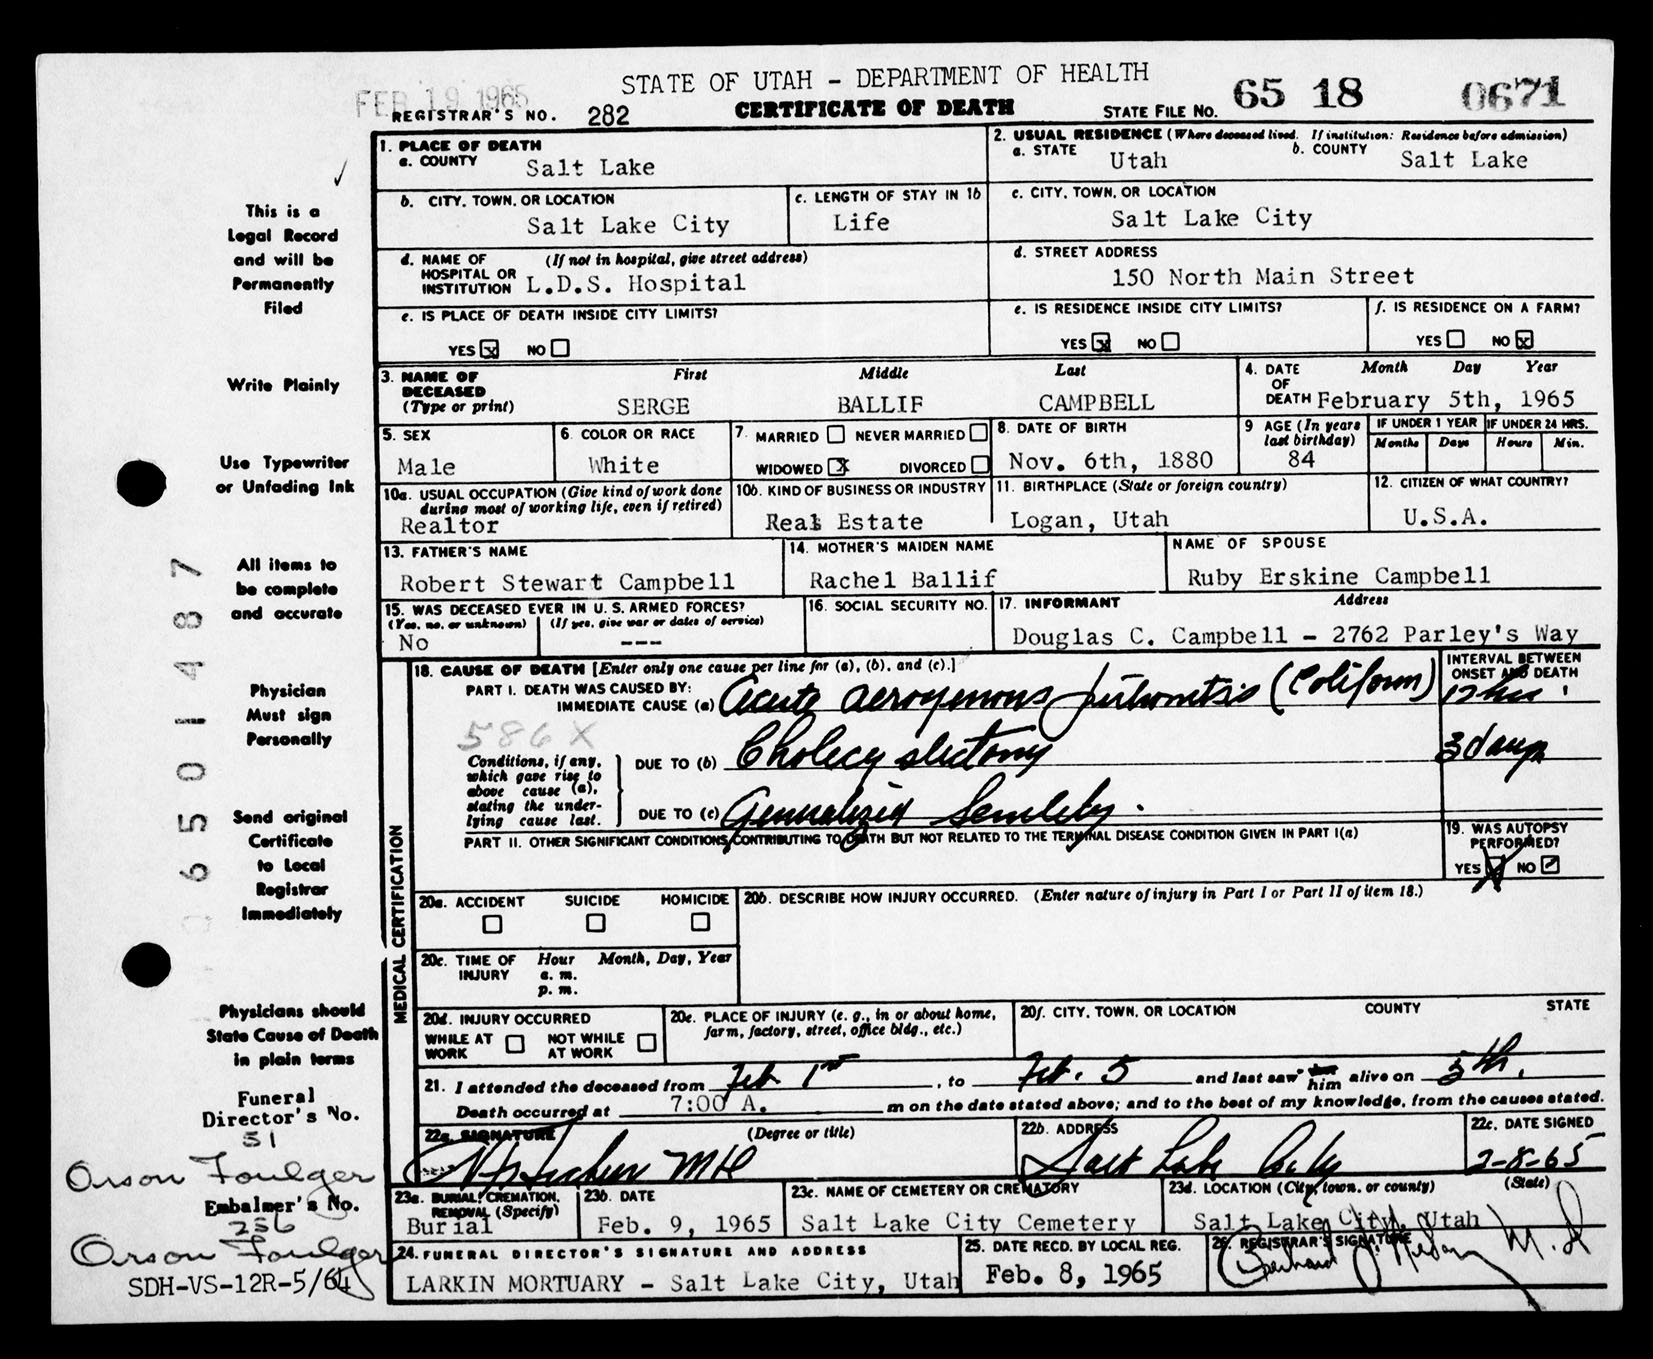 STATE OF UTAH - DEPARTMENT OF HEALTH
FEB 19 1965
REGISTRAR'S NO. 282
CERTIFICATE OF DEATH
STATE FILE NO. 65 18 0671
1. PLACE OF DEATH
a. COUNTY Salt Lake
2. USUAL RESIDENCE (Where deceased lived. If institution: Residence before admission)
a. STATE Utah b. COUNTY Salt Lake
b. CITY, TOWN, OR LOCATION Salt Lake City
c. LENGTH OF STAY IN 1b Life
c. CITY, TOWN, OR LOCATION Salt Lake City
d. NAME OF HOSPITAL OR INSTITUTION (If not in hospital, give street address) L.D.S. Hospital
d. STREET ADDRESS 150 North Main Street
e. IS PLACE OF DEATH INSIDE CITY LIMITS?
YES x NO
e. IS RESIDENCE INSIDE CITY LIMITS?
YES x NO
f. IS RESIDENCE ON A FARM?
YES NO x
3. NAME OF DECEASED (Type or print)
First Middle Last
SERGE BALLIF CAMPBELL
4. DATE OF DEATH Month Day Year
February 5th, 1965
5. SEX Male
6. COLOR OR RACE White
7. MARRIED NEVER MARRIED
WIDOWED X DIVORCED
8. DATE OF BIRTH Nov. 6th, 1880
9 AGE (In years last birthday) 84
IF UNDER 1 YEAR Months Days
IF UNDER 24 HRS. Hours Min.
10a. USUAL OCCUPATION (Give kind of work done during most of working life, even if retired) Realtor
10b. KIND OF BUSINESS OR INDUSTRY Real Estate
11. BIRTHPLACE (State or foreign country) Logan, Utah
12. CITIZEN OF WHAT COUNTRY? U.S.A.
13. FATHER'S NAME Robert Stewart Campbell
14. MOTHER'S MAIDEN NAME Rachel Ballif
NAME OF SPOUSE Ruby Erskine Campbell
15. WAS DECEASED EVER IN U.S. ARMED FORCES?
(Yes, no, or unknown) (If yes, give war or dates of service)
No ---
16. SOCIAL SECURITY NO.
17. INFORMANT Address
Douglas C. Campbell - 2762 Parley's Way
MEDICAL CERTIFICATION
18. CAUSE OF DEATH [Enter only one cause per line for (a), (b), and (c).]
INTERVAL BETWEEN ONSET AND DEATH
PART I. DEATH WAS CAUSED BY:
IMMEDIATE CAUSE (a) Acute aerogenous (Coliform) 12 hrs
586X
Conditions, if any, which gave rise to above cause (a), stating the underlying cause last.
DUE TO (b) Cholecystectomy 3 days
DUE TO (c) Generalized Senility.
PART II. OTHER SIGNIFICANT CONDITIONS CONTRIBUTING TO DEATH BUT NOT RELATED TO THE TERMINAL DISEASE CONDITION GIVEN IN PART I(a)
19. WAS AUTOPSY PERFORMED?
YES NO
20a. ACCIDENT SUICIDE HOMICIDE
20b. DESCRIBE HOW INJURY OCCURRED. (Enter nature of injury in Part I or Part II of item 18.)
20c. TIME OF INJURY Hour Month, Day, Year
a. m.
p. m.
20d. INJURY OCCURRED
WHILE AT WORK NOT WHILE AT WORK
20e. PLACE OF INJURY (e. g., in or about home, farm, factory, street, office bldg., etc.)
20f. CITY, TOWN, OR LOCATION COUNTY STATE
21. I attended the deceased from Feb 1st, to Feb. 5 and last saw him alive on 5th.
Death occurred at 7:00 A. m on the date stated above; and to the best of my knowledge, from the causes stated.
22a. SIGNATURE (Degree or title) MD
22b. ADDRESS Salt Lake City
22c. DATE SIGNED 2-8-65
23a. BURIAL, CREMATION, REMOVAL (Specify) Burial
23b. DATE Feb. 9, 1965
23c. NAME OF CEMETERY OR CREMATORY Salt Lake City Cemetery
23d. LOCATION (City, town, or county) (State) Salt Lake City, Utah
24. FUNERAL DIRECTOR'S SIGNATURE AND ADDRESS
LARKIN MORTUARY - Salt Lake City, Utah
25. DATE RECD. BY LOCAL REG. Feb. 8, 1965
26. REGISTRAR'S SIGNATURE M.D
This is a
Legal Record
and will be
Permanently
Filed
Write Plainly
Use Typewriter
or Unfading Ink
All items to
be complete
and accurate
Physician
Must sign
Personally
Send original
Certificate
to Local
Registrar
Immediately
Physicians should
State Cause of Death
in plain terms
Funeral
Director's No.
51
Orson Foulger
Embalmer's No.
256
Orson Foulger
SDH-VS-12R-5/64
0 6 5 0 1 4 8 7